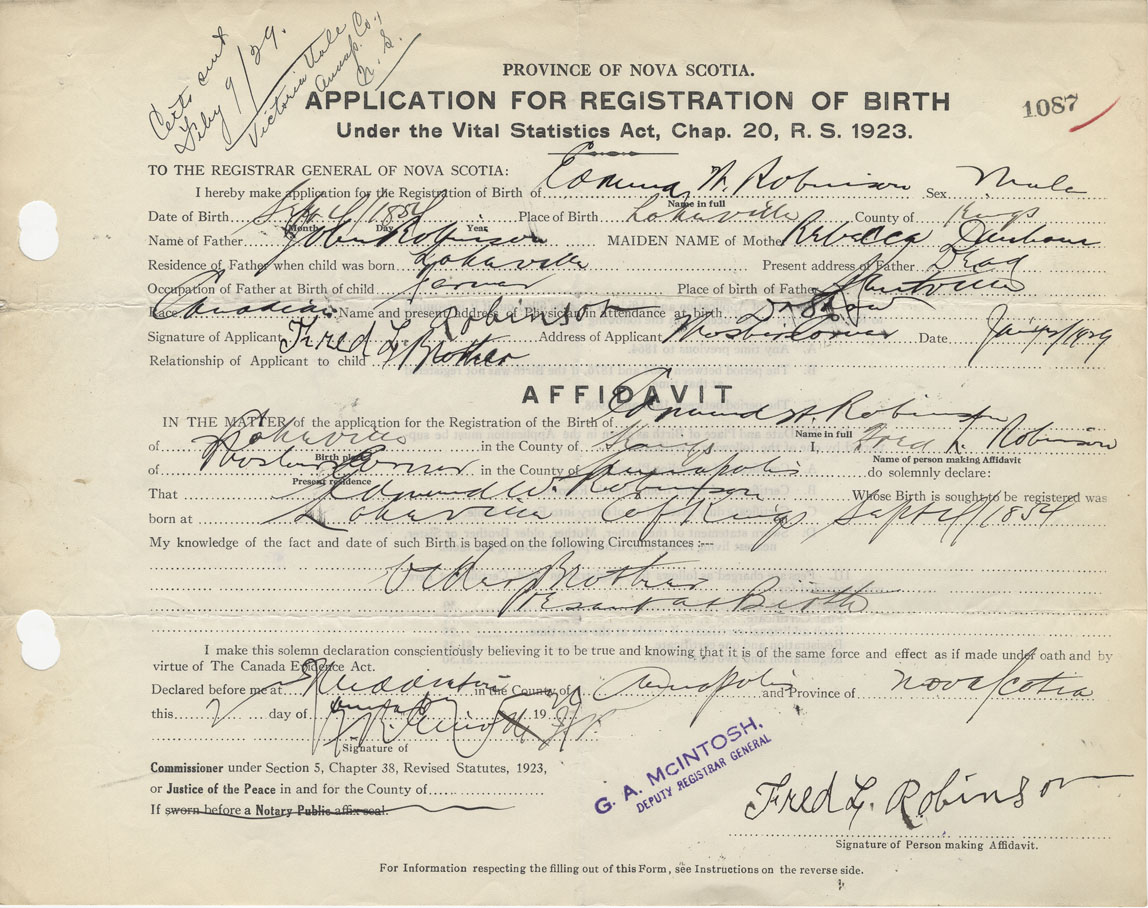 Certs sent
Feby 9/29.
Victoria Vale
Annap. Co.,
N. S.
PROVINCE OF NOVA SCOTIA.
APPLICATION FOR REGISTRATION OF BIRTH
1087
Under the Vital Statistics Act, Chap. 20, R. S. 1923.
TO THE REGISTRAR GENERAL OF NOVA SCOTIA:
I hereby make application for the Registration of Birth of Edmund W. Robinson Sex Male
Name in full
Date of Birth Sept 4/1854 Place of Birth Lakeville County of Kings
Month Day Year
Name of Father John Robinson MAIDEN NAME of Mother Rebecca
Residence of Father when child was born Lakeville Present address of Father Dead
Occupation of Father at Birth of child Farmer Place of birth of Father
Race Canadian Name and present address of Physician in Attendance at birth
Signature of Applicant Fred L. Robinson Address of Applicant Date
Relationship of Applicant to child Brother
AFFIDAVIT
IN THE MATTER of the application for the Registration of the Birth of Edmund W. Robinson
Name in full
of Lakeville in the County of Kings I, Fred L. Robinson
Birth place
Name of person making Affidavit
of in the County of Annapolis do solemnly declare:
Present residence
That Edmund W. Robinson Whose Birth is sought to be registered was
born at Lakeville Co of Kings Sept 4/1854
My knowledge of the fact and date of such Birth is based on the following Circumstances :--
Older Brother
Present at Birth
I make this solemn declaration conscientiously believing it to be true and knowing that it is of the same force and effect as if made under oath and by
virtue of The Canada Evidence Act.
Declared before me at in the County of Annapolis and Province of Nova Scotia
this 2 day of January 1929
J.P.
Signature of
Commissioner under Section 5, Chapter 38, Revised Statutes, 1923,
or Justice of the Peace in and for the County of
If sworn before a Notary Public affix seal.
G. A. McINTOSH,
DEPUTY REGISTRAR GENERAL
Fred L. Robinson
Signature of Person making Affidavit.
For Information respecting the filling out of this Form, see Instructions on the reverse side.